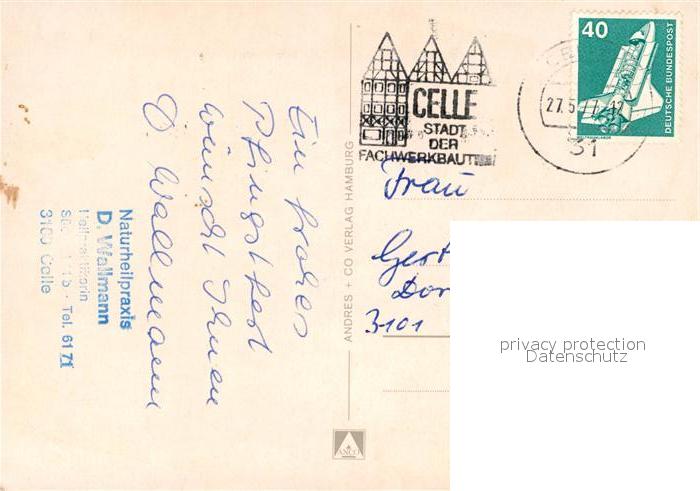 Ein frohes
Pfingstfest
wünscht Ihnen
D. Wallmann
Naturheilpraxis
D. Wallmann
Heilpraktikerin
Tel. 61 71
3100 Celle
ANDRES + CO VERLAG HAMBURG
ANCO
CELLE
STADT
DER
FACHWERKBAUTEN
27.5.
31
40
DEUTSCHE BUNDESPOST
Frau
3101
privacy protection
Datenschutz